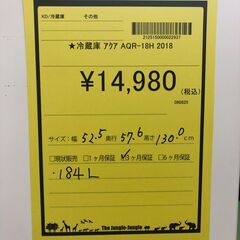 KD/冷蔵庫 その他
2125150000022937
★冷蔵庫 アクア AQR-18H 2018
¥14,980
(税込)
080825
サイズ：幅 52.5 奥行 57.6 高さ 130.0 cm
□現状販売 □1ヶ月保証 ☑3ヶ月保証 □6ヶ月保証
・184L
The Jungle-Jungle